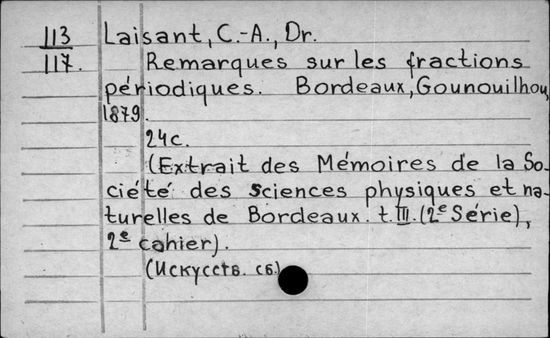 113 Laisant, C.-A., Dr.
117. Remarques sur les fractions
périodiques. Bordeaux, Gounouilhou,
1879.
24с.
(Extrait des Mémoires de la So-
ciété des sciences physiques et na-
turelles de Bordeaux. t. III. (2e Série),
2e cahier).
(Искусств. сб.)